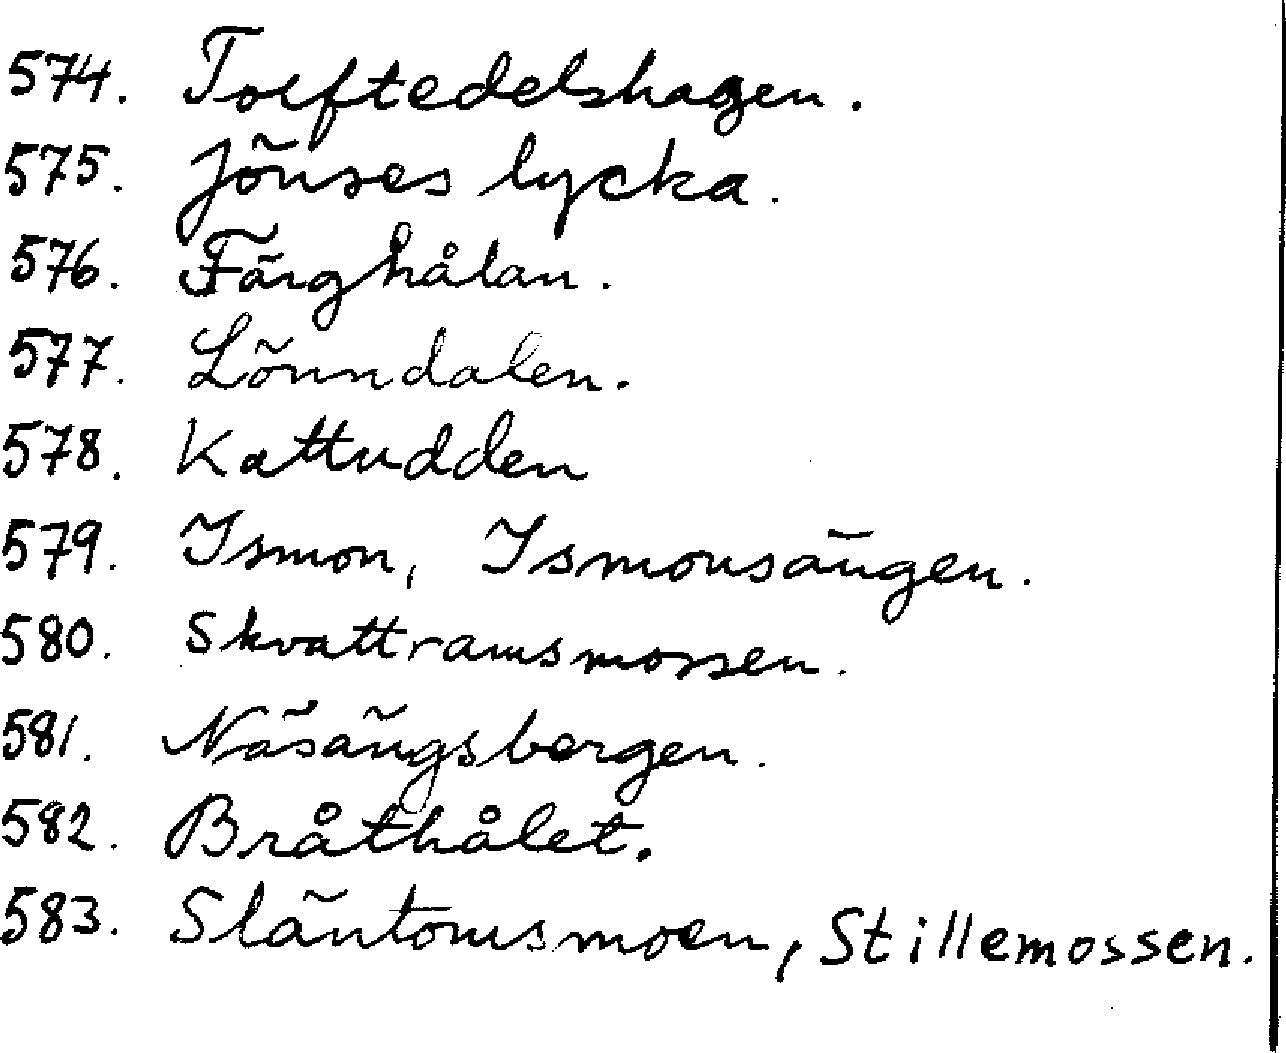 574. Tolftedelshagen.
575. Jönses lycka.
576. Färghålan.
577. Lönndalen.
578. Kattudden
579. Ismon, Ismonsängen.
580. Skvattramsmossen.
581. Näsängsbergen.
582. Bråthålet.
583. Släntomsmoen, Stillemossen.